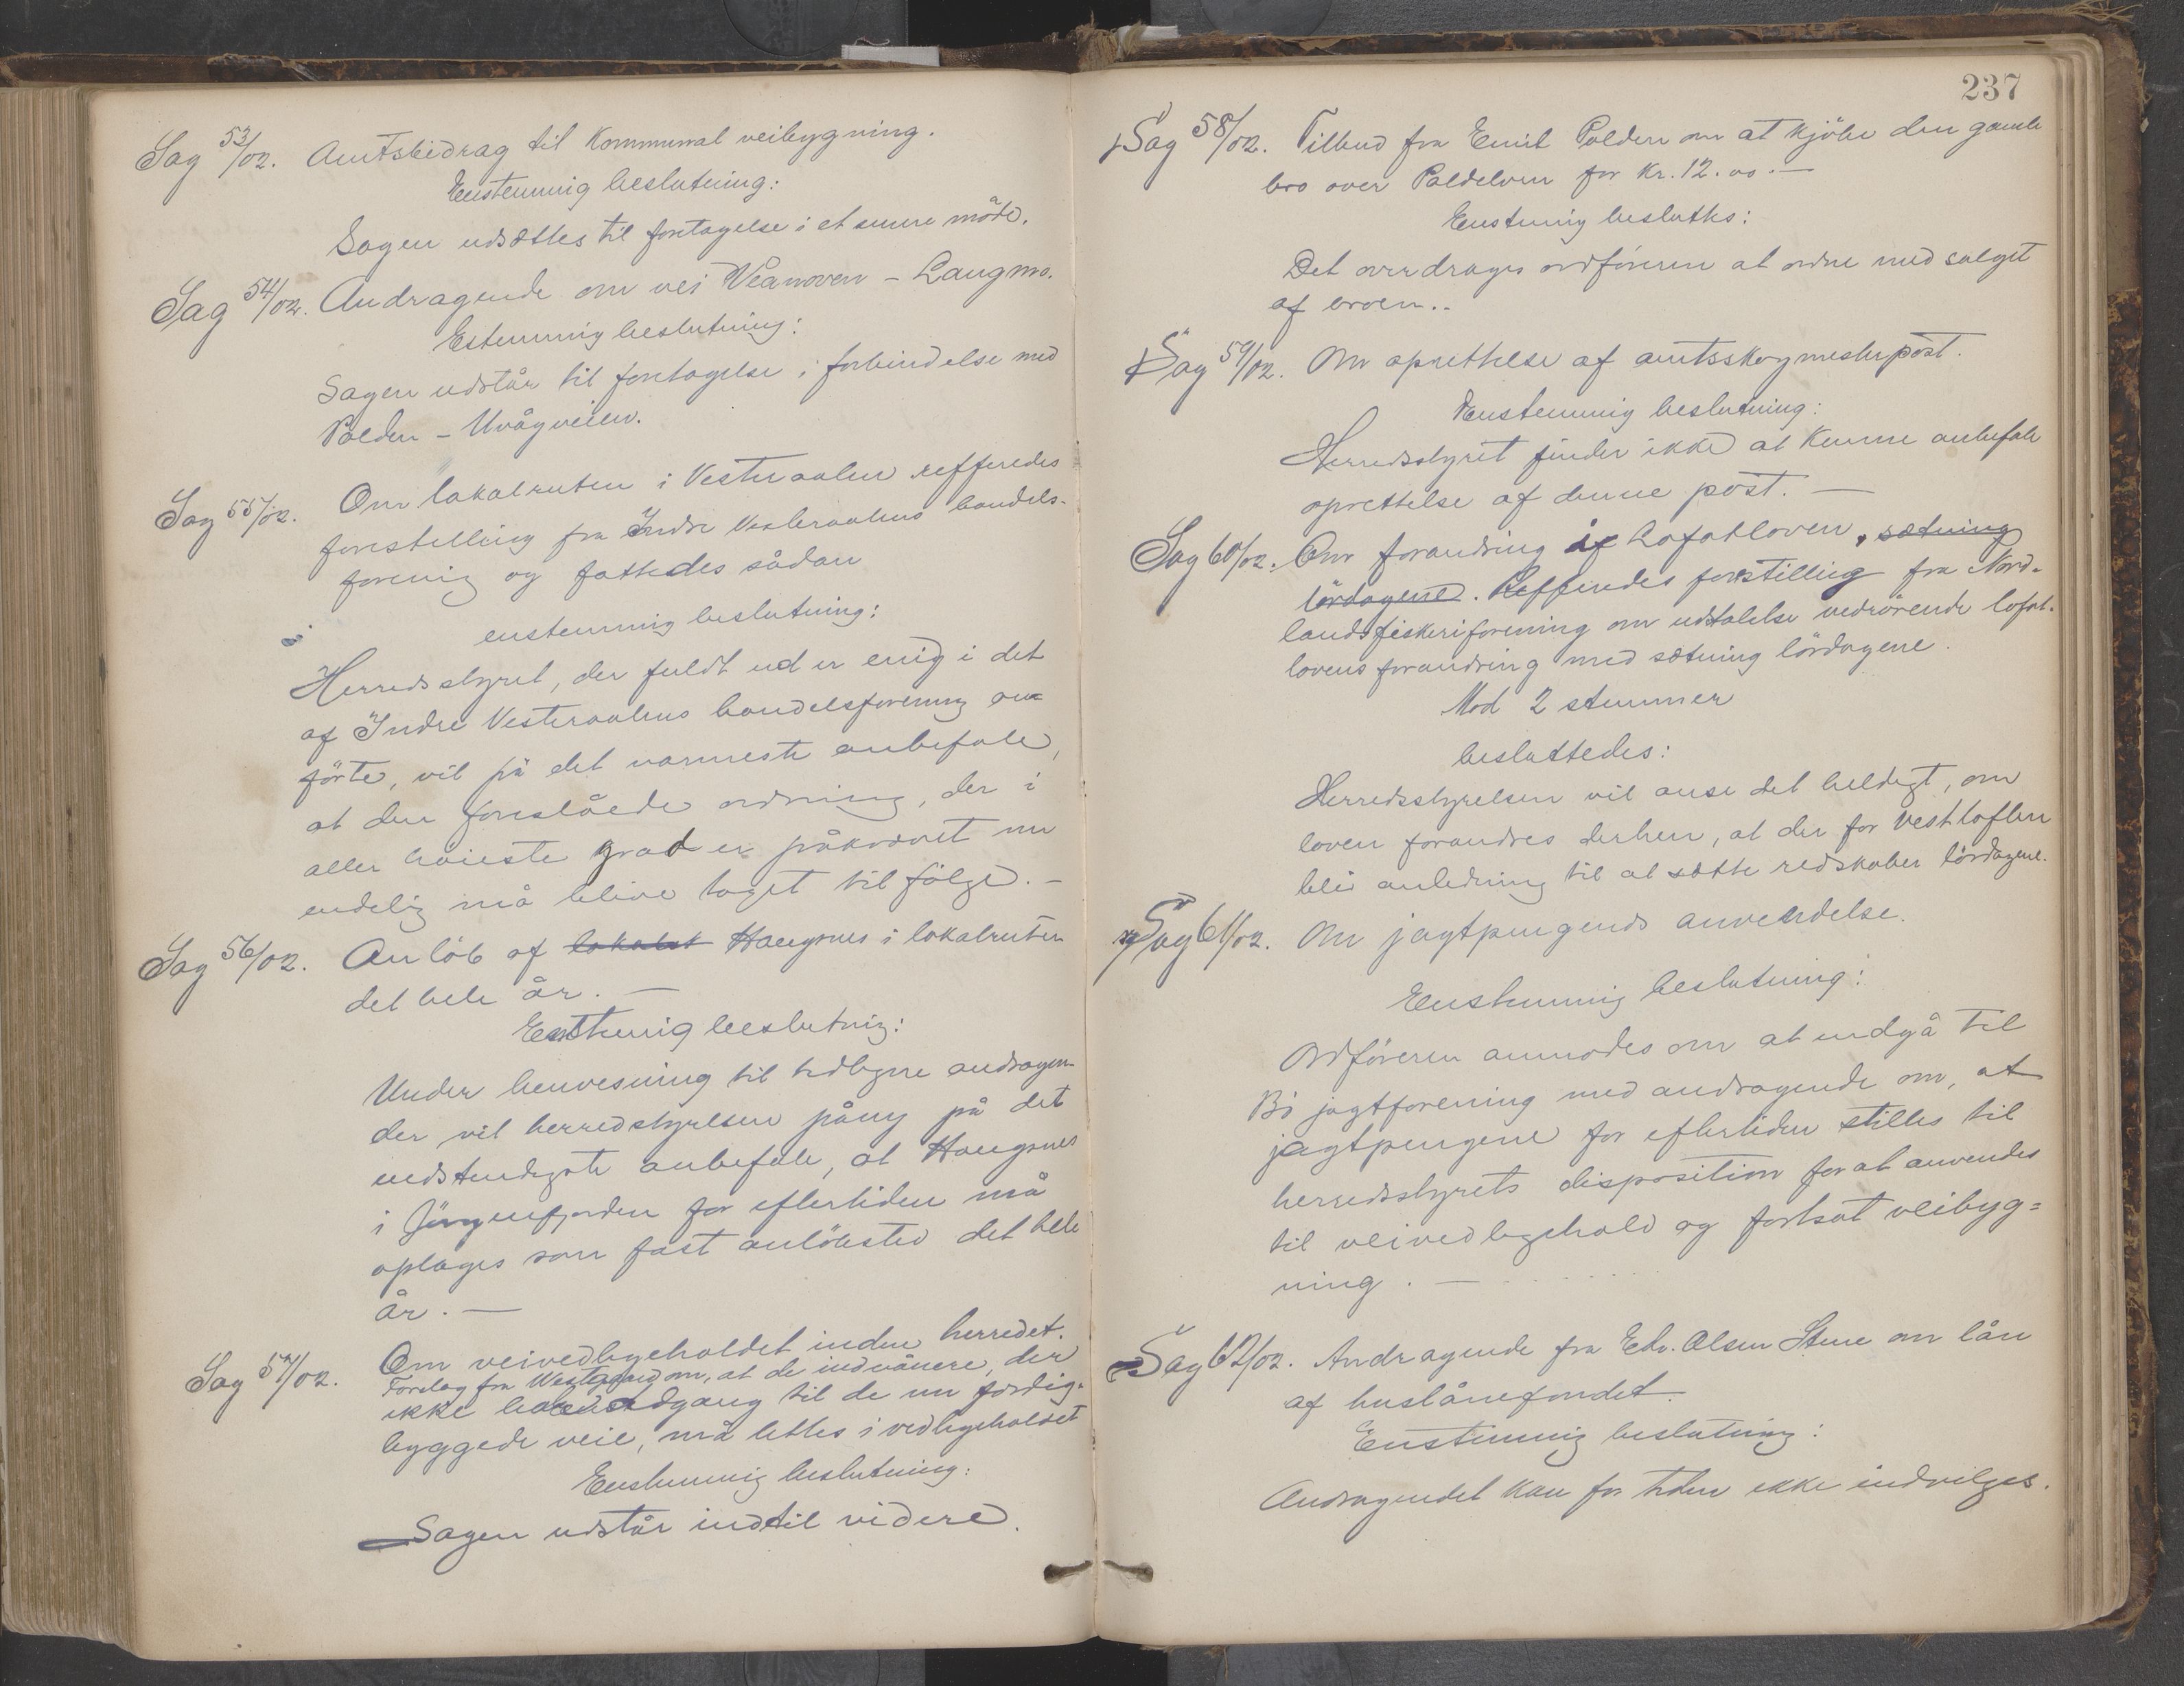 Sag 53/02. Amtsbidrag til Kommunal veibygning.
Enstemmig beslutning:
Sagen udsættes til foretagelse i et senere möde.
Sag 54/02. Andragende om vei Veanoven - Langmo.
Estemmig beslutning:
Sagen udstår til foretagelse i forbindelse med
Polden - Uvågveien.
Sag 55/02. Om lokalruten i Vesteraalen refferedes
forestilling fra Indre Vesteraalens handels-
forening og fattedes sådan
enstemmig beslutning:
Herredsstyret, der fuldt ud er enig i det
af Indre Vesteraalens handelsforening an-
förte, vil på det varmeste anbefale,
at den foreslåede ordning, der i
aller höieste grad er påkrævet nu
endelig må blive taget til fölge. -
Sag 56/02. Anlöb af lokalrut Haugsnes i lokalruten
det hele år. -
Enstemig beslutnig:
Under henvisning til tidligere andragen-
der vil herredstyrelsen påny på det
indstendigste anbefale, at Haugsnes
i Jörgenfjorden for eftertiden må
optages som fast anlöbssted det hele
år. -
Sag 57/02. Om veivedligeholdet inden herredet.
Forslag fra om, at de indvånere, der
ikke have adgang til de nu færdig-
byggede veie, må lettes i vedligeholdet
Enstemmig beslutning:
Sagen udstår indtil videre.
237
Sag 58/02. Tilbud fra Emil Polden om at kjöbe den gamle
bro over Poldelven for Kr. 12.00. -
Enstemig besluttes:
Det overdrages ordföreren at ordne med salget
af broen..
Sag 59/02. Om oprettelse af amtsskogmesterpost.
Enstemmig beslutning:
Herredsstyret finder ikke at kunne anbefale
oprettelse af denne post. -
Sag 60/02. Om forandring af Lofotloven, sætning
lördagene. Refferedes forestilling fra Nord-
lands fiskeriforening om udtalelse vedrörende lofot-
lovens forandring med sætning lördagene.
Mod 2 stemmer
besluttedes:
Herredsstyrelsen vil anse det heldigt, om
loven forandres derhen, at der for Vestlofoten
blir anledning til at sætte redskaber lördagene.
Sag 61/02. Om jagtpengends anvendelse.
Enstemmig beslutning:
Ordföreren anmodes om at indgå til
Bö jagtforening med andragende om, at
jagtpengene for eftertiden stilles til
herredsstyrets disposition for at anvendes
til veivedligehold og fortsat veibyg=
ning. -
Sag 62/02. Andragende fra Edv. Olsen Stene om lån
af huslånefondet.
Enstemmig beslutning:
Andragendet kan for tiden ikke indvilges.